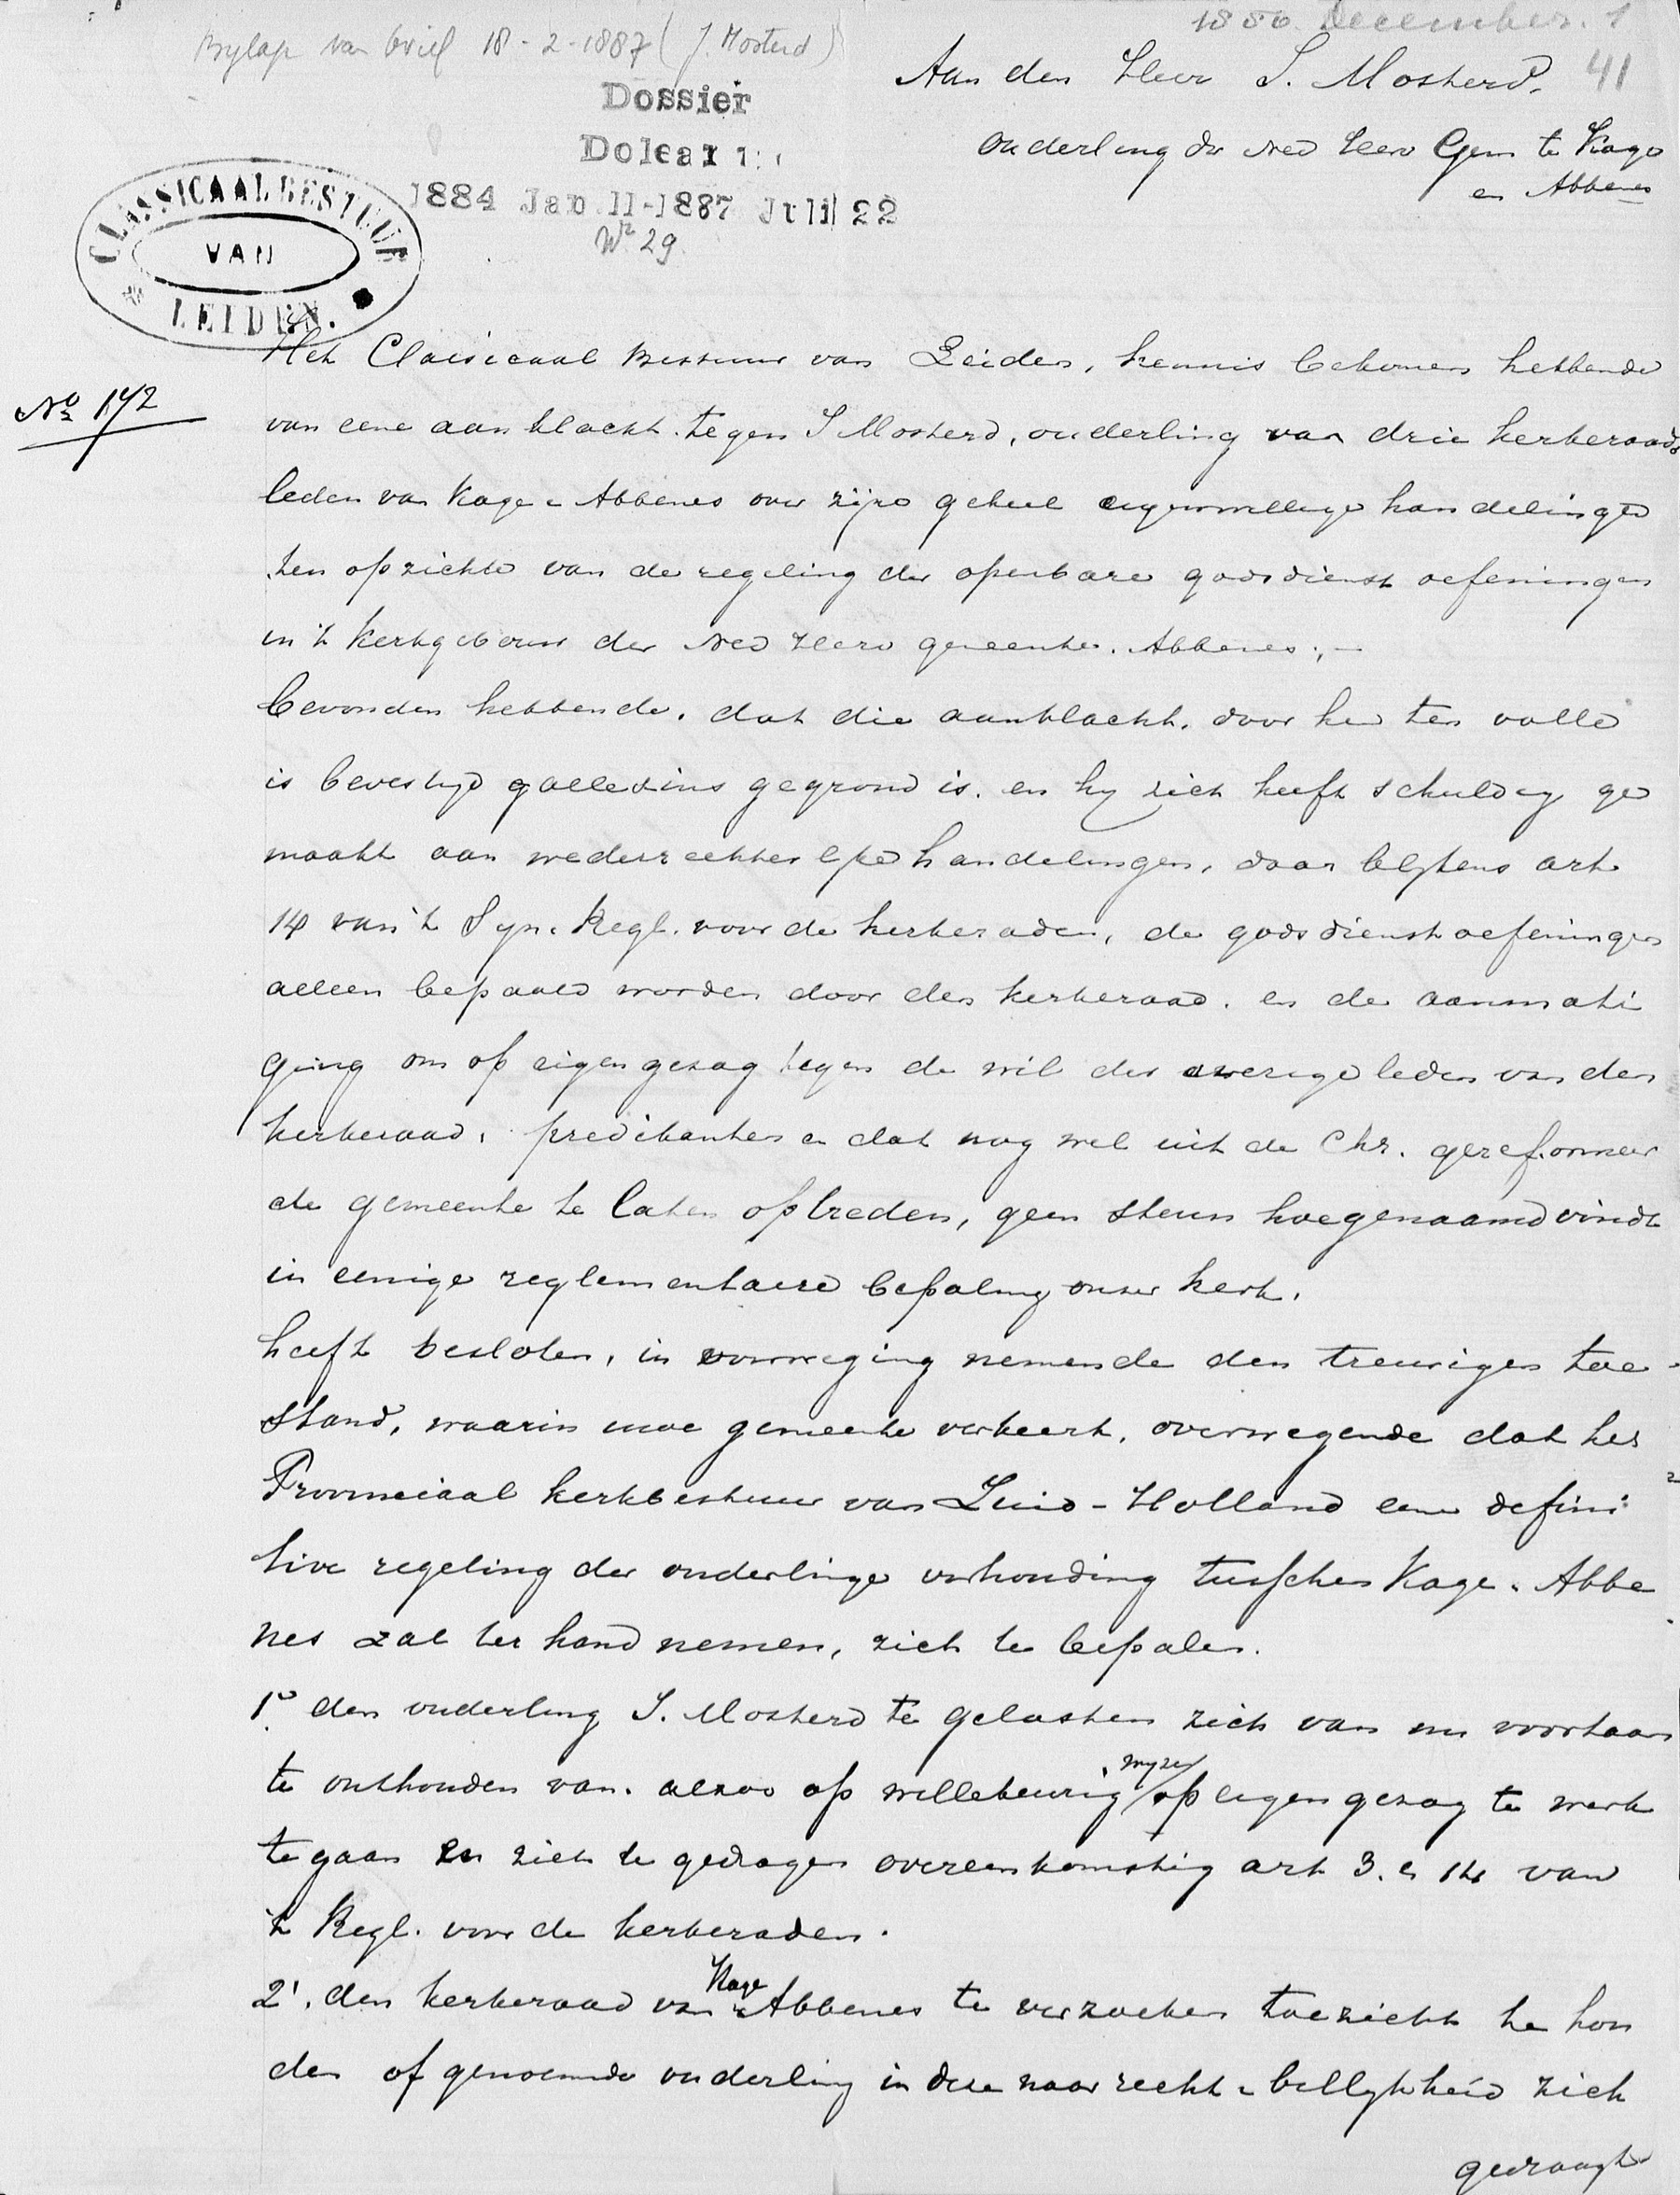 1886. December. 1
Bylage van brief 18-2-1887 (J. Mosterd)
41
Aan den Heer J. Mosterd,
Dossier
Ouderling der Ned Herv Gem te Kage
en Abbenes
Doleantie
1884 Jan 11-1887 Juli 22
No 29
CLASSICAAL BESTUUR
VAN
LEIDEN.
No 172
Het Classicaal Bestuur van Leiden, kennis bekomen hebbende
van eene aanklacht tegen J Mosterd, ouderling van drie kerkeraads
leden van Kage & Abbenes over zijne geheel eigenwillige handelingen
ten opzichte van de regeling der openbare godsdienst oefeningen
in 't kerkgebouw der Ned Herv gemeente. Abbenes;
bevonden hebbende, dat die aanklacht, door hem ten volle
is bevestigd & alleszins gegrond is, en hy zich heeft schuldig ge
maakt aan wederrechterlyke handelingen, daar blykens art
14 van 't Syn. Regl. voor de kerkeraden, de godsdienstoefeningen
alleen bepaald worden door den kerkeraad, en de aanmati
ging om op eigen gezag tegen de wil der overige leden van den
kerkeraad, predikanten en dat nog wel uit de Chr. gereformeer
de gemeente te laten optreden, geen steun hoegenaamd vindt
in eenige reglementaire bepaling onzer kerk.
heeft besloten, in overweging nemende den treurigen toe-
stand, waarin uwe gemeente verkeert, overwegende dat het
Provinciaal kerkbestuur van Zuid-Holland eene defini
tive regeling der onderlinge verhouding tusschen Kage & Abbe
nes zal ter hand nemen, zich te bepalen.
1o den ouderling J. Mosterd te gelasten zich van nu voortaan
te onthouden van. alzoo op willekeurig wyze op eigen gezag te werk
te gaan en zich te gedragen overeenkomstig art 3. & 14 van
't Regl. voor de kerkeraden.
2'. den kerkeraad van Kage & Abbenes te verzoeken toezicht te hou
den of genoemde ouderling in deze naar recht & billykheid zich
gedraagt